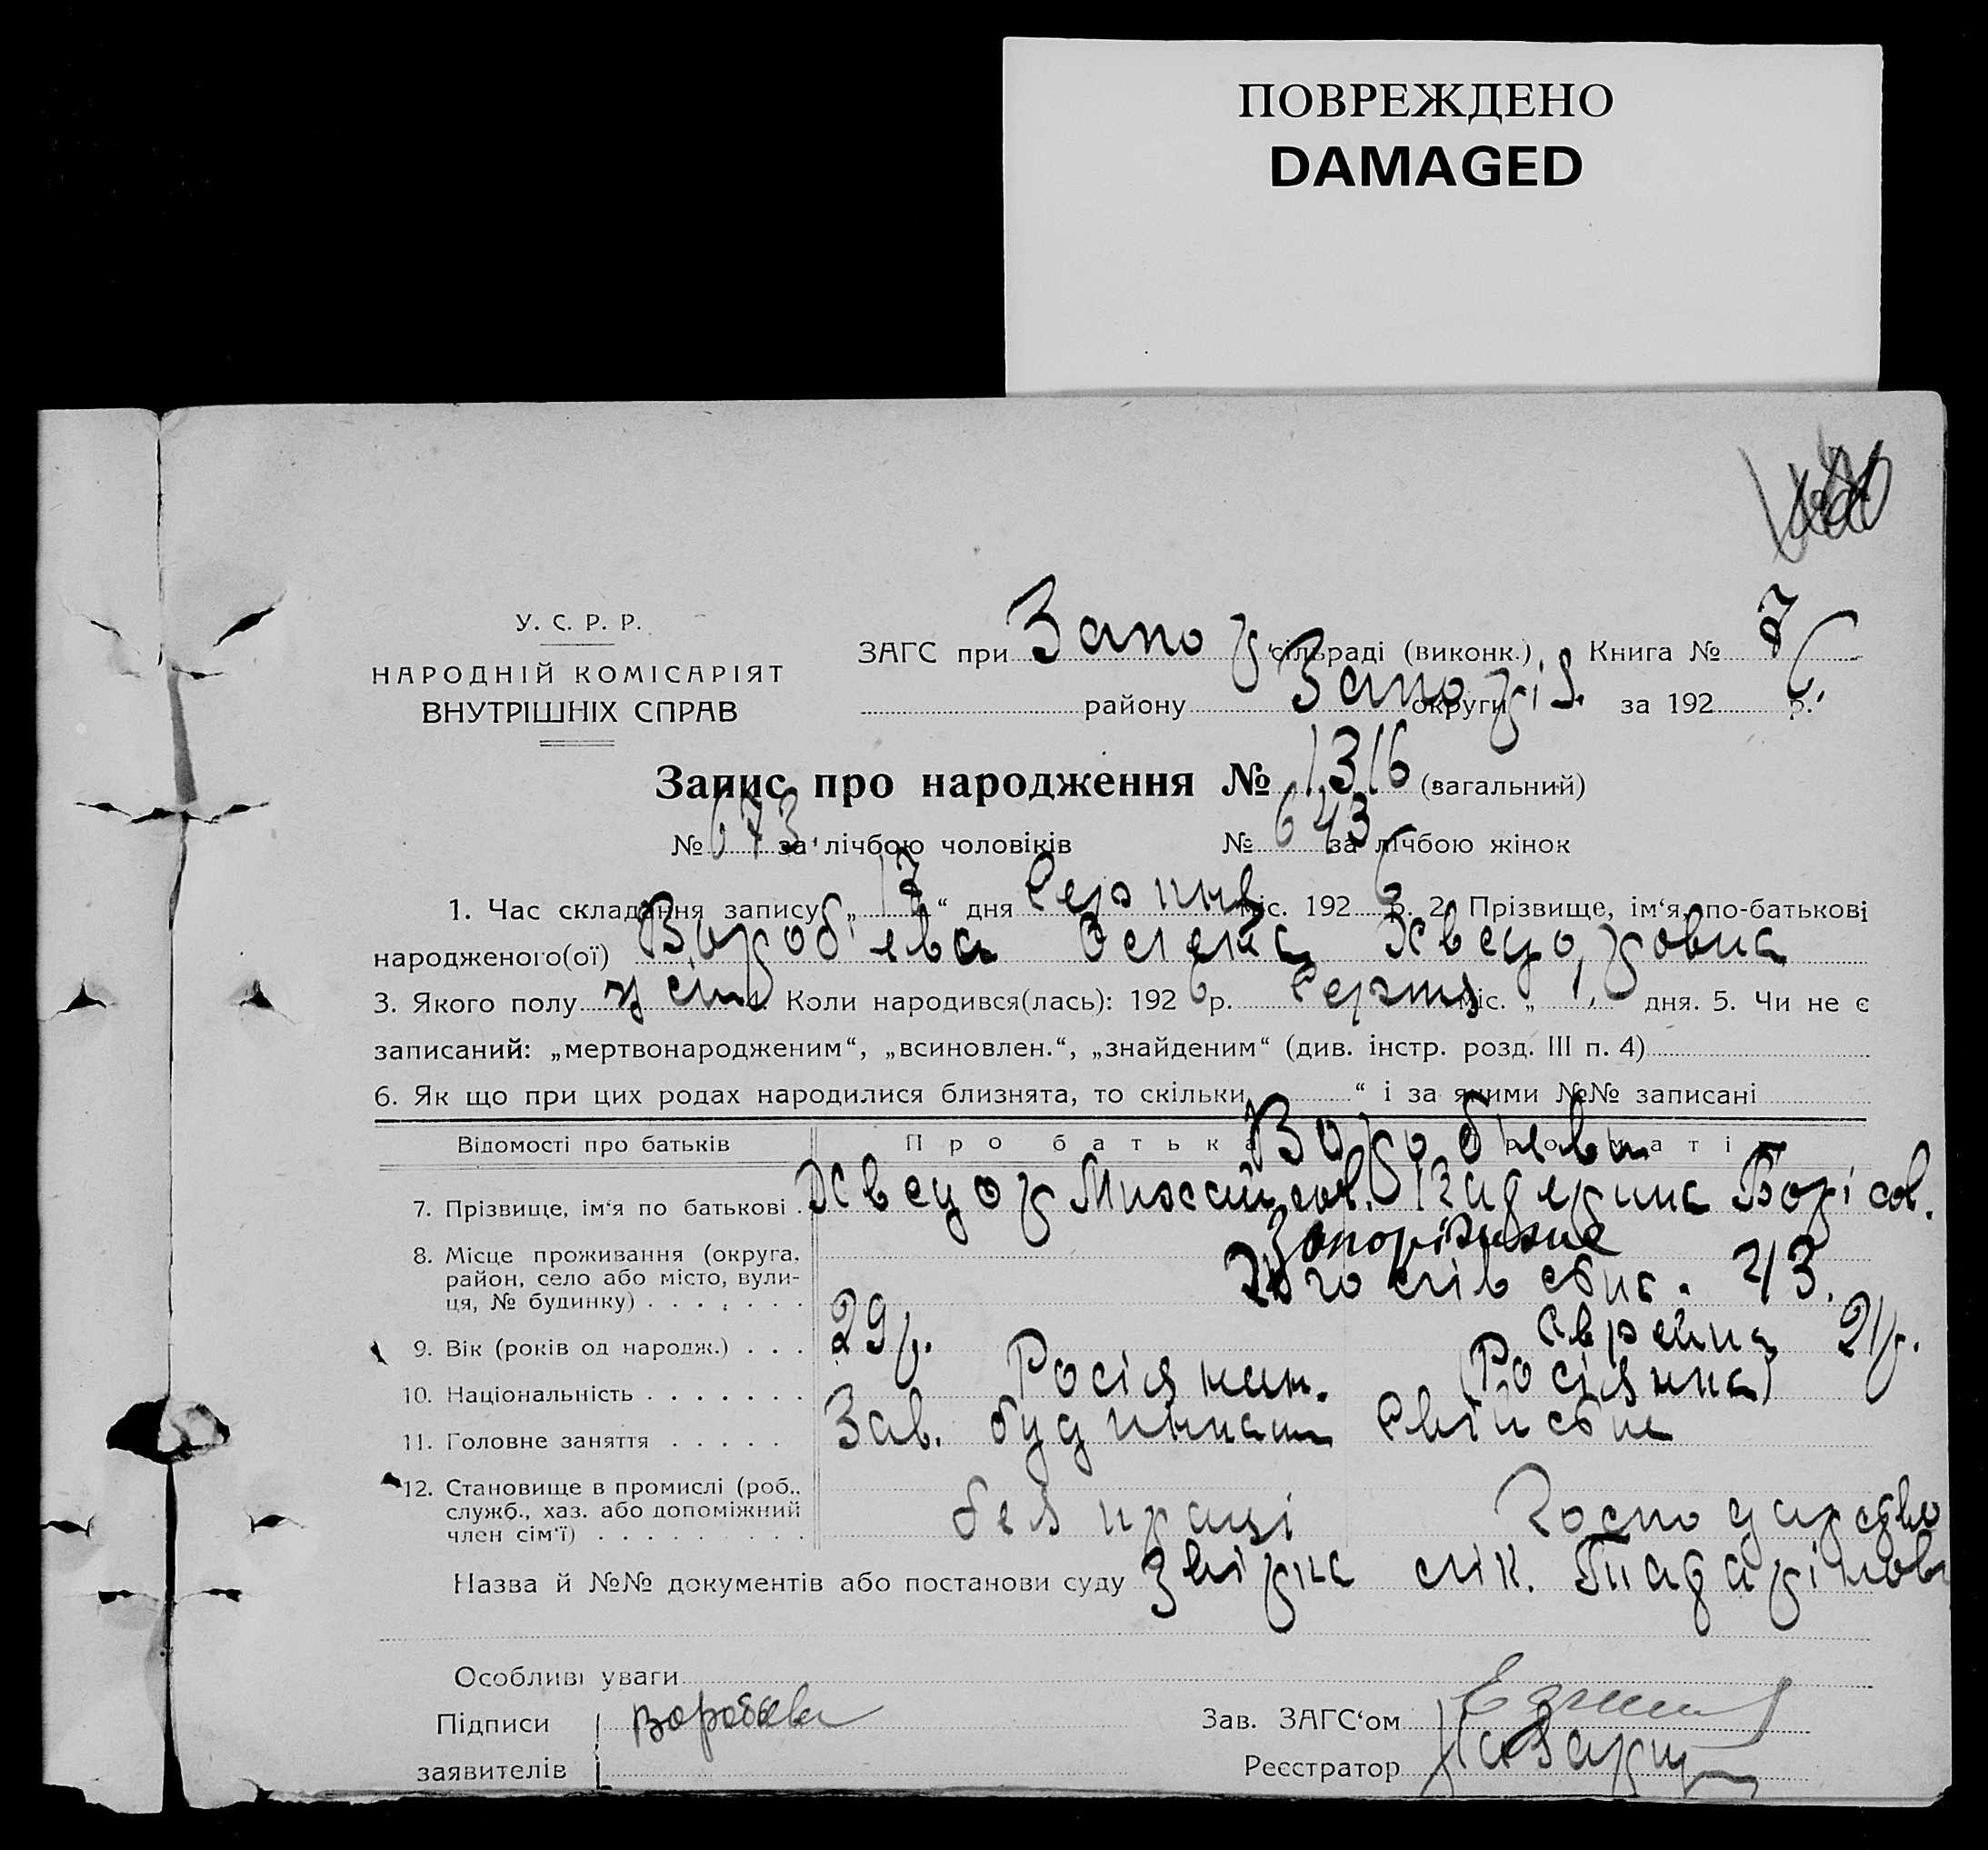 ПОВРЕЖДЕНО
DAMAGED
У. С. Р. Р.
НАРОДНІЙ КОМІСАРІЯТ
ВНУТРІШНІХ СПРАВ
ЗАГС при Запор сільраді (виконк.) Книга № 7
району Запоріз. округи за 192 6 р.
Запис про народження № 1316 (загальний)
№ 673 за лічбою чоловіків № 643 за лічбою жінок
1. Час складання запису „ 17 “ дня Серпня міс. 192 6 р. 2. Прізвище, ім‘я, по-батькові
народженого(ої) Вороб'ева Хведоровна
3. Якого полу Коли народився(лась): 192 6 р. міс. „ дня. 5. Чи не є
записаний: „мертвонародженим“, „всиновлен.“, „знайденим“ (див. інстр. розд. III п. 4)
6. Як що при цих родах народилися близнята, то скільки “ і за якими №№ записані
Відомості про батьків Про батька Про матір
Вороб'еви
7. Прізвище, ім‘я по батькові Хведор Михайлов. Катерина Борісов.
8. Місце проживання (округа, район, село або місто, вули-
ця, № будинку) Запоріжжє
43.
9. Вік (років од народж.) 29 р. Єврейка 21 р.
10. Національність Росіянин. (Росіянка)
11. Головне заняття Зав. будинком Свійсбке
12. Становище в промислі (роб.,
служб., хаз. або допоміжний
член сім‘ї) без праці Господарство
Назва й №№ документів або постанови суду
Особливі уваги
Підписи Воробьева Зав. ЗАГС‘ом
заявителів Реєстратор